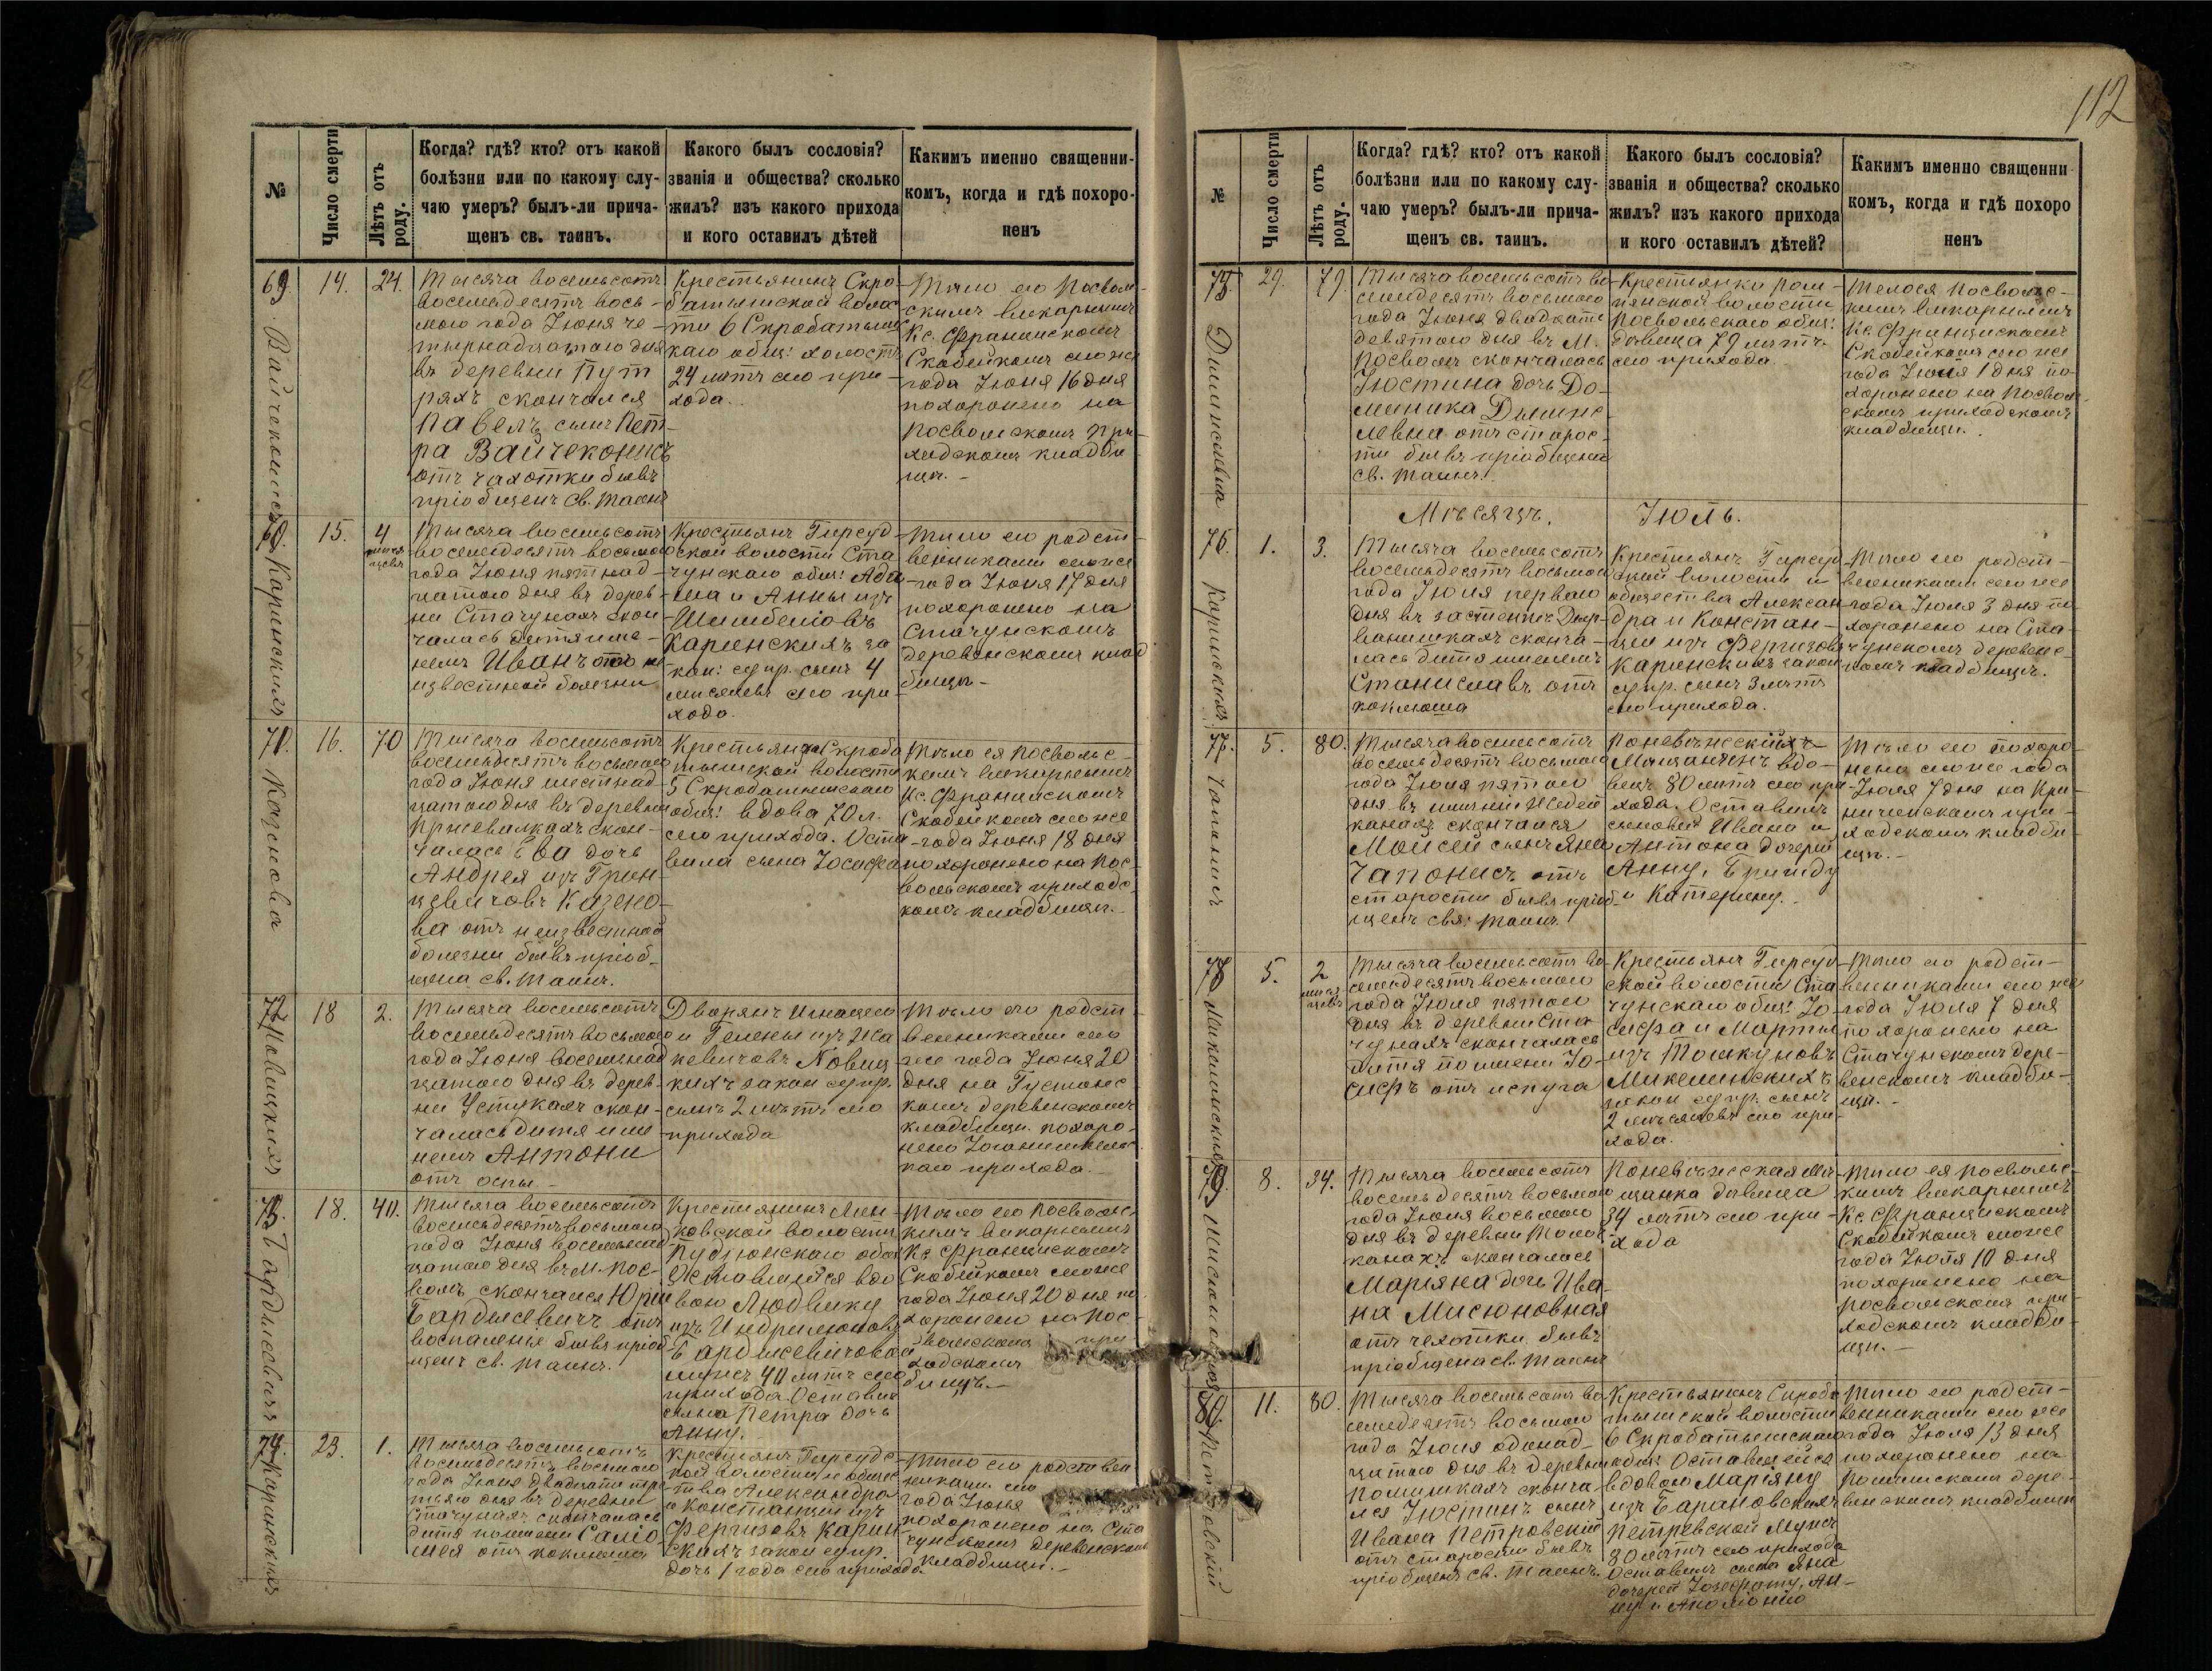 112
№
Число смерти
Лѣтъ отъ роду.
Когда? гдѣ? кто? отъ какой
болѣзни или по какому слу-
чаю умеръ? былъ-ли прича-
щенъ св. таинъ.
Какого былъ сословія?
званія и общества? сколько
жилъ? изъ какого прихода
и кого оставилъ дѣтей
Какимъ именно священни-
комъ, когда и гдѣ похоро-
ненъ
69. Вайчеконисъ
14.
24.
Тысяча восемьсотъ
восемьдесятъ вось-
мого года Іюня че-
тырнадцатого дня
въ деревни Пут
ряхъ скончался
Павелъ сынъ Пет-
ра Вайчеконисъ
отъ чахотки бывъ
пріобщенъ св. таинъ
Крестьянинъ Скро-
батышской волос
ти 6 Скробатышс
каго общ: холостъ
24 лѣтъ сего при-
хода.
Тѣло его Посволь-
скимъ викарнымъ
Кс. Францискомъ
Скобейкомъ сего же
года Іюня 16 дня
похоронено на
Посвольскомъ при-
ходскомъ кладби
щѣ.-
70. Каринскихъ
15.
4
мѣся
цевъ
Тысяча восемьсотъ
восемьдесятъ восьмого
года Іюня пятнад-
цатого дня въ дерев-
ни Стачунахъ скон-
чалась дитя име-
немъ Иванъ отъ не
известной болезни
Крестьянъ Гирсуд-
ской волости Ста
чунскаго общ: Ада
ма и Анны изъ
Шимбеліовъ
Каринскихъ за
кон: супр. сынъ 4
мисяцевъ сего при
хода.
Тѣло его родст-
венниками сего же
года Іюня 17 дня
похоронено на
Стачунскомъ
деревенскомъ клад
бищѣ-
71. Казенова
16.
70
Тысяча восемьсотъ
восемьдесятъ восьмого
года Іюня шестнад-
цатого дня въ деревни
Пржевалкахъ скон-
чалась Ева дочь
Андрея изъ Грин-
цевичовъ Казено-
ва отъ неизвестной
болезни бывъ пріоб-
щена св. таинъ.
Крестьянка Скроба
тышской волости
5 Скробатышскаго
общ: вдова 70 л.
сего прихода. Оста
вила сына Іосифа
Тѣло ея Посвольс-
кимъ викарнымъ
Кс. Францискомъ
Скобейкомъ сего же
года Іюня 18 дня
похоронено на Пос-
вольскомъ приходс-
комъ кладбищѣ.-
72. Новицкихъ
18
2.
Тысяча восемьсотъ
восемьдесятъ восьмого
года Іюня восемнад
цатого дня въ дерев-
ни Устукахъ скон-
чалась дитя име
немъ Антони
отъ оспы.-
Дворянъ Игнацего
и Гелены изъ
кевичовъ Новиц
кихъ закон супр.
сынъ 2 лѣтъ сего
прихода
Тѣло его родст-
венниками сего
же года Іюня 20
дня на Густонс
комъ деревенскомъ
кладбищи. похоро-
нено
каго прихода.-
73. Бардишевичъ
18.
40.
Тысяча восемьсотъ
восемьдесятъ восьмого
года Іюня восемьнад
цатого дня въ М. Пос-
волѣ скончался Юри
Бардишевичъ отъ
воспаленье бывъ пріоб
щенъ св. таинъ.
Крестьянинъ Лин-
ковской волости
общ
Оставшейся вдо
вою Людвику
изъ
Бардишевичовой
мужъ 40 лѣтъ сего
прихода. Оставилъ
сына Петра дочь
Анну.-
Тѣло его Посвольс
кимъ викарнымъ
Кс. Францискомъ
Скобейкомъ сего же
года Іюня 20 дня по
хоронено на Пос-
вольскомъ при
ходскомъ
бищѣ.-
74. Каринскихъ
23.
1.
Тысяча восемьсотъ
восемьдесятъ восьмого
года Іюня двадцати тре
тьяго дня въ деревни
Стачунахъ скончалась
дитя по имени Саліо
мея отъ коклюша
Крестьянъ Гирсудс-
кой волости и общес
тва Александра
и Констанціи изъ
Фергизовъ Карин-
скихъ закон супр.
дочь 1 года сего прихода.
Тѣло его родствен
никами сего
года Іюня
похоронено на Ста
чунскомъ деревенскомъ
кладбищи.-
№
Число смерти
Лѣтъ отъ роду.
Когда? гдѣ? кто? отъ какой
болѣзни или по какому слу-
чаю умеръ? былъ-ли прича-
щенъ св. таинъ.
Какого былъ сословія?
званія и общества? сколько
жилъ? изъ какого прихода
и кого оставилъ дѣтей?
Какимъ именно священни
комъ, когда и гдѣ похоро
ненъ
75
29.
79.
Тысяча восемьсотъ во-
семдесятъ восьмого
года Іюня двадцать
девятого дня въ М.
Посволѣ скончалась
Юстина дочь До-
миника
левна отъ старос-
ти бывъ пріобщена
св. таинъ.
Крестьянка
пянской волости
Посвольскаго общ:
девица 79 лѣтъ
сего прихода.
Тело ея Посвольс-
кимъ викарнымъ
Кс. Францискомъ
Скобейкомъ сего же
года Іюля 1 дня по
хоронено на Посволь
скомъ приходскомъ
кладбищи.
Мѣсяцъ. Іюль.
76. Каринскихъ
1.
3.
Тысяча восемьсотъ
восемьдесятъ восьмого
года Іюля первого
дня въ застенкѣ
ванишкахъ сконча-
лась дитя именемъ
Станиславъ отъ
коклюша
Крестьянъ Гирсуд
ской волости и
общества Алексан
дра и Констан-
ціи изъ Фергизовъ
Каринскихъ закон
супр. сынъ 3 лѣтъ
сего прихода.
Тѣло его родст-
венниками сего же
года Іюля 3 дня по
хоронено на Ста-
чунскомъ деревенс-
комъ кладбищѣ.
77. Чапонисъ
5.
80.
Тысяча восемьсотъ
восемьдесятъ восьмого
года Іюля пятого
дня въ имѣніи
канахъ скончался
Мойсей сынъ Яна
Чапонисъ отъ
старости бывъ пріоб-
щенъ свя: таинъ.
Поневѣжскій
Мещанинъ вдо-
вецъ 80 лѣтъ сего при
хода. Оставилъ
сыновей Ивана и
Антона дочерей
Анну, Бригиду
и Катерину.-
Тѣло его похоро-
нено сего же года
Іюля 7 дня на Кри-
ничинскомъ при-
ходскомъ кладби-
щѣ.-
78
5.
2
мися
цевъ
Тысяча восемьсотъ во-
семдесятъ восьмого
года Іюля пятого
дня въ деревни Ста
чунахъ скончалась
дитя по имени Іо-
сифъ отъ испуга
Крестьянъ Гирсуд
ской волости Ста
чунскаго общ: Іо-
сифа и Марты
изъ Пошкуновъ
закон супр. сынъ
2 мѣсяцевъ сего при-
хода.
Тѣло его родст-
венниками сего же
года Іюля 7 дня
похоронено на
Стачунскомъ дере-
венскомъ кладби-
щи.-
79.
8.
34.
Тысяча восемьсотъ
восемьдесятъ восьмого
года Іюля восьмого
дня въ деревни
канахъ скончалась
Маріяна дочь Ива
на Мисюновная
отъ чехотки. бывъ
пріобщена св. таинъ
Поневѣжская Мѣ-
щанка девица
34 лѣтъ сего при-
хода
Тѣло ея Посвольс-
кимъ викарнымъ
Кс. Францискомъ
Скобейкомъ сего же
года Іюля 10 дня
похоронено на
Посвольскомъ при-
ходскомъ кладби
щи.-
80. Петровскій
11.
80.
Тысяча восемьсотъ во-
семдесятъ восьмого
года Іюля одинад-
цатого дня въ деревни
Помишкахъ сконча
лся Юстинъ сынъ
Ивана Петровскій
отъ старости бывъ
пріобщенъ св. таинъ.
Крестьянинъ Скроба
тышской волости
6 Скробатышскаго
общ: Оставшейся
вдовою Маріяну
изъ Барановскихъ
Петревской Мужъ
80 лѣтъ сего прихода
Оставилъ сына Яна
дочерей Іозефату, Ан-
ну и Аполіонію
Тѣло его родст-
венниками сего же
года Іюля 13 дня
похоронено на
Помишскомъ дере-
венскомъ кладбищи